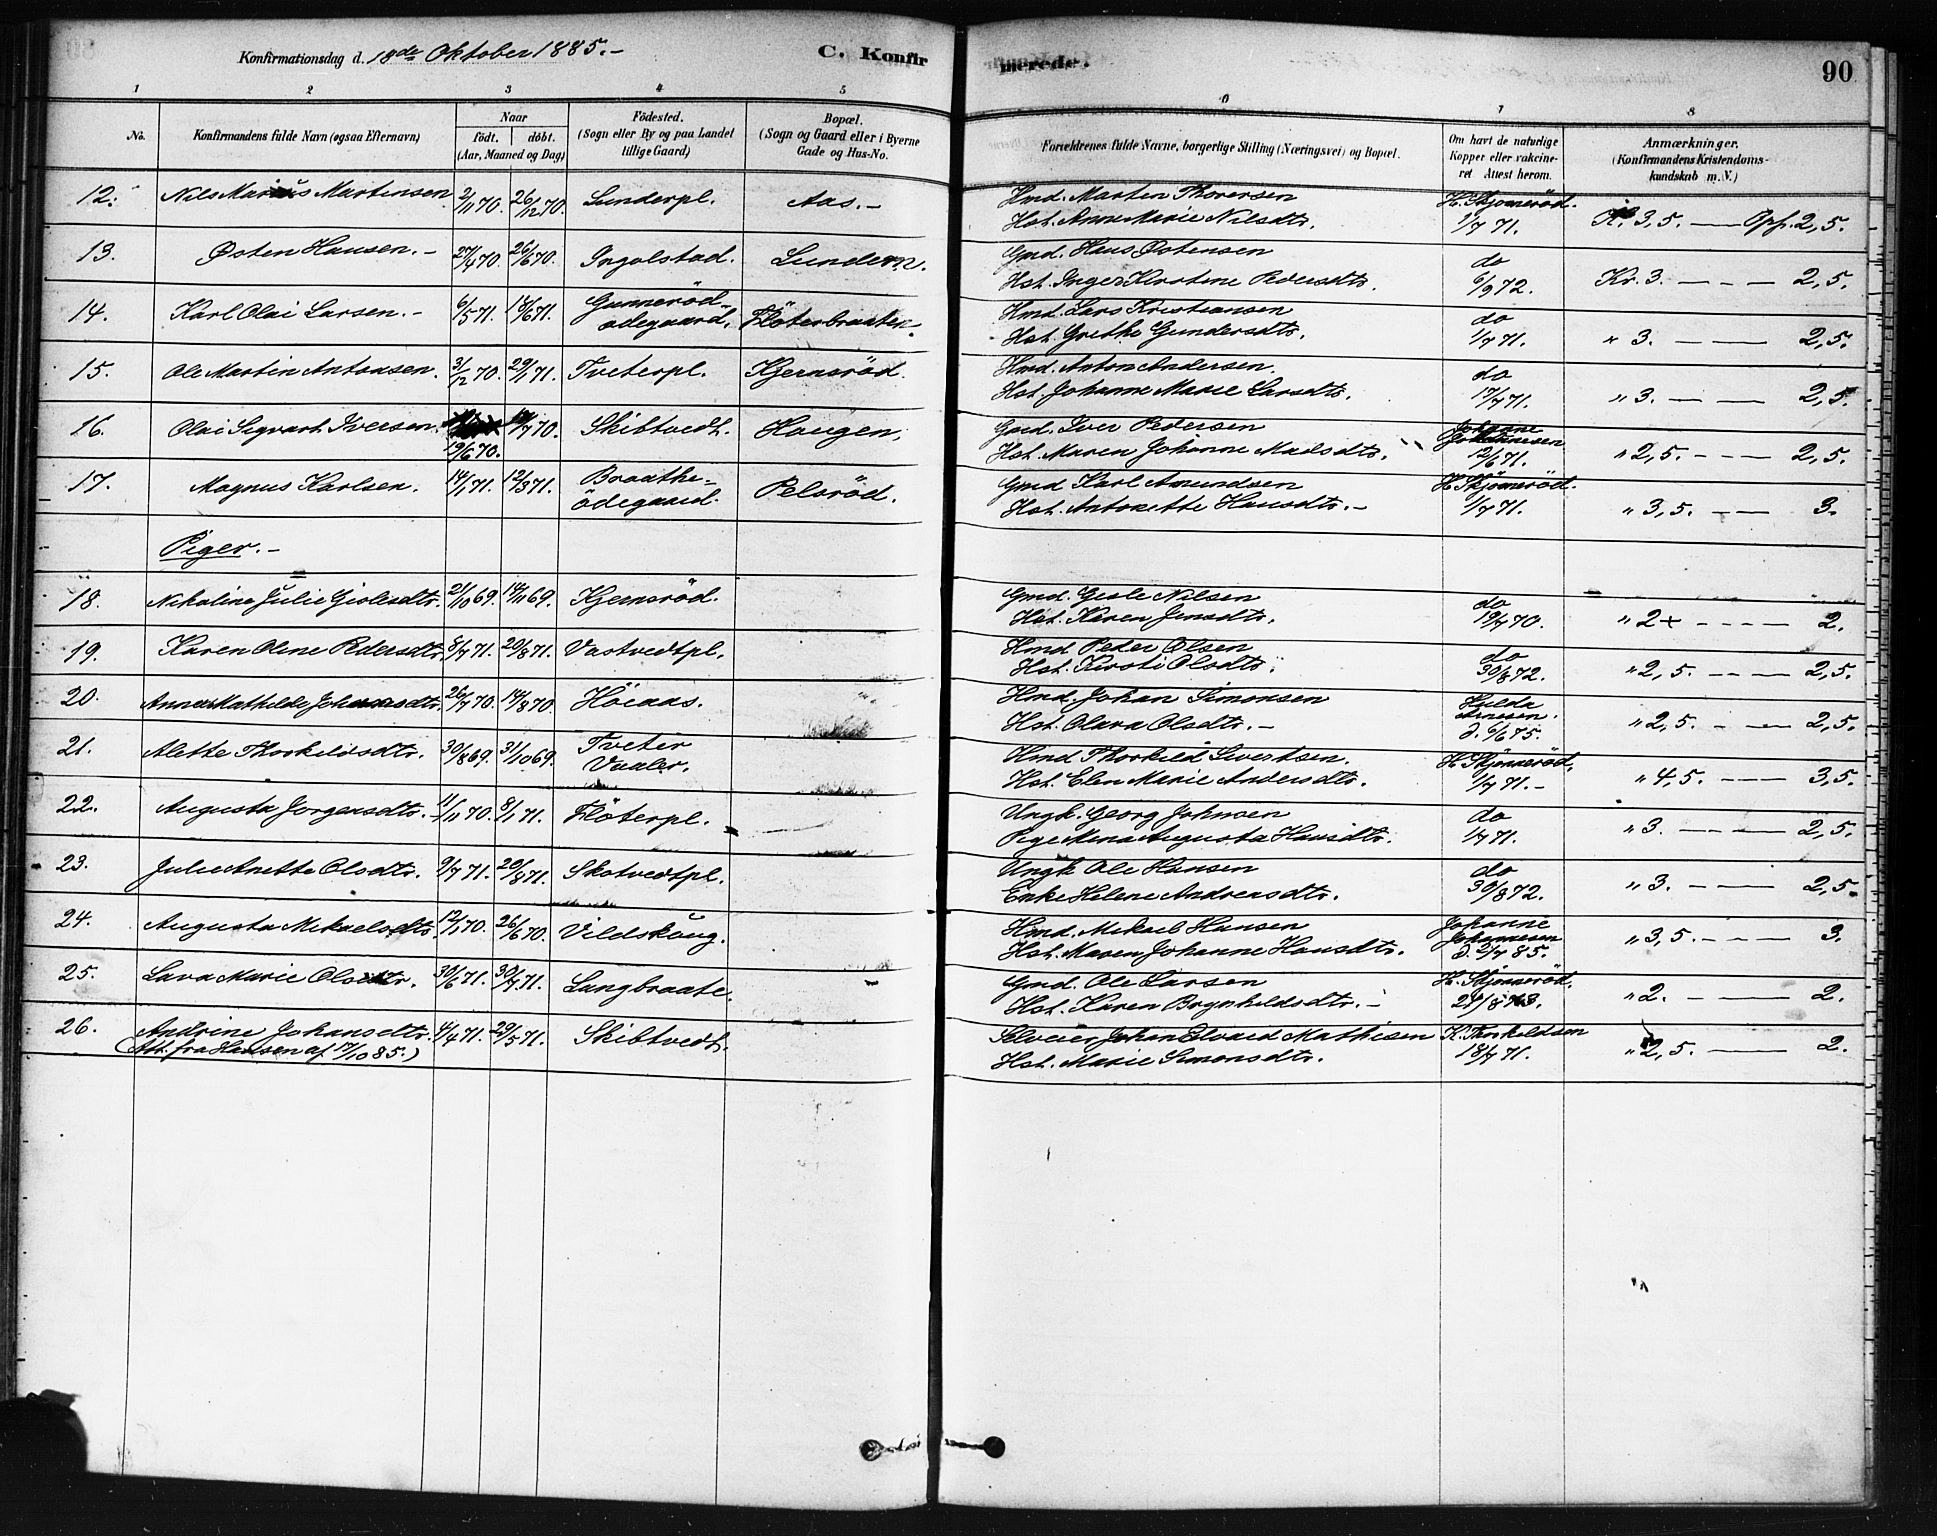 Konfirmationsdag d. 18de Oktober 1885.-
C. Konfirmerede.
90
1 2 3 4 5 6 7 8
No. Konfirmandens fulde Navn (ogsaa Efternavn) Naar Födt. döbt. (Aar, Maaned og Dag) Födested. (Sogn eller By og paa Landet tillige Gaard) Bopæl. (Sogn og Gaard eller i Byerne Gade og Hus-No. Forældrenes fulde Navne, borgerlige Stilling (Næringsvei) og Bopæl. Om havt de naturlige Kopper eller vakcineret Attest herom. Anmærkninger. (Konfirmandens Kristendomskundskab m.V.)
12. Nils Marius Martinsen 2/11 70. 26/12 70. Lunderpl. Aas.- Hmd. Marten Thorersen
Hst. Anne Marie Nilsdtr. H. Skjönneröd. 1/7 71. K. 3,5. — Opf. 2,5.
13. Østen Hansen.- 27/4 70. 26/6 70. Ingolstad. Lundern. Gmd. Hans Östensen
Hst. Inger Kirstine Pedersdtr. do 6/9 72. Kr. 3. - - - 2,5.
14. Karl Olai Larsen.- 6/5 71. 18/6 71. Gunneröd-
ödegaard. Flöterbraaten. Hmd. Lars Kristiansen
Hst. Grethe Gundersdtr. do 1/7 71. " 3. — 2,5.
15. Ole Martin Antonsen. 3/12 70. 29/1 71. Tveterpl. Kjernsröd. Hmd. Anton Andersen.
Hst. Johanne Marie Larsdtr. do 17/7 71. " 3. — 2,5.
16. Olai Sigvart Iversen. 19/6 70. /7 70. Skibtvedt. Haugen. Gmd. Iver Pedersen
Hst. Maren Johanne Madsdtr. Johanne Johannesen 12/6 71. " 2,5. - - - 2,5.
17. Magnus Karlsen. 14/1 71. 12/3 71. Braathe-
ödegaard. Pelsröd. Gmd Karl Amundsen
Hst. Antonette Hansdtr.- H. Skjönneröd. 1/7 71. " 3,5. — 3.
Piger.-
18. Nikoline Julie Gislesdtr. 21/10 69. 14/11 69. Kjernsröd. Gmd. Gisle Nilsen
Hst. Karen Jensdtr. do 19/7 70. " 2 + - - - - 2.
19. Karen Oline Pedersdtr. 8/7 71. 20/8 71. Vastvedtpl. Hmd Peder Olsen
Hst. Kirsti Olsdtr. do 30/8 72. " 2,5. - - - 2,5.
20. Anne Mathilde Johansdtr. 26/7 70. 14/8 70. Höiaas. Hmd. Johan Simonsen
Hst. Olava Olsdtr.- Hulda Arnesen. d. 6/6 75. " 2,5. - - - 2,5.
21. Alette Thorkildsdtr. 30/8 69. 31/10 69. Tveter
Vaaler. Hmd Thorkild Sivertsen.
Hst. Elen Marie Andersdtr. H. Skjönneröd. 1/7 71.- " 4,5. — 3,5.
22. Augusta Jorgensdtr. 11/11 70. 8/1 71. Flöterpl. Ungk. Georg Johnsen
Pige Mina Augusta Hansdtr. do 1/7 71. " 3. — 2,5.
23. Julie Anette Olsdtr. 9/7 71. 20/8 71. Skotvedtpl. Ungk Ole Hansen
Enke Helene Andreasdtr. do 30/8 72. " 3. — 2,5.
24. Augusta Mikaelsdtr. 12/1 70. 26/6 70. Vildskoug. Hmd. Mikael Hansen
Hst. Maren Johanne Hansdtr. Johanne Johannesen d. 2/7 85. " 3,5. - - - 3.
25. Lava Marie Olsdtr. 30/6 71. 30/7 71. Langbraate. Gmd. Ole Larsen
Hst. Karen Brynhildsdtr.- H. Skjönneröd. 24/8 73. " 2. — 2.
26. Andrine Johansdtr. 4/4 71. 29/5 71. Skibtvedt. Selveier Johan Edvard Mathisen K. Thorkildsen
(Att. fra Hansen af 17/10 85.) Hst. Marie Simonsdtr. 18/7 71. " 2,5. — 2.